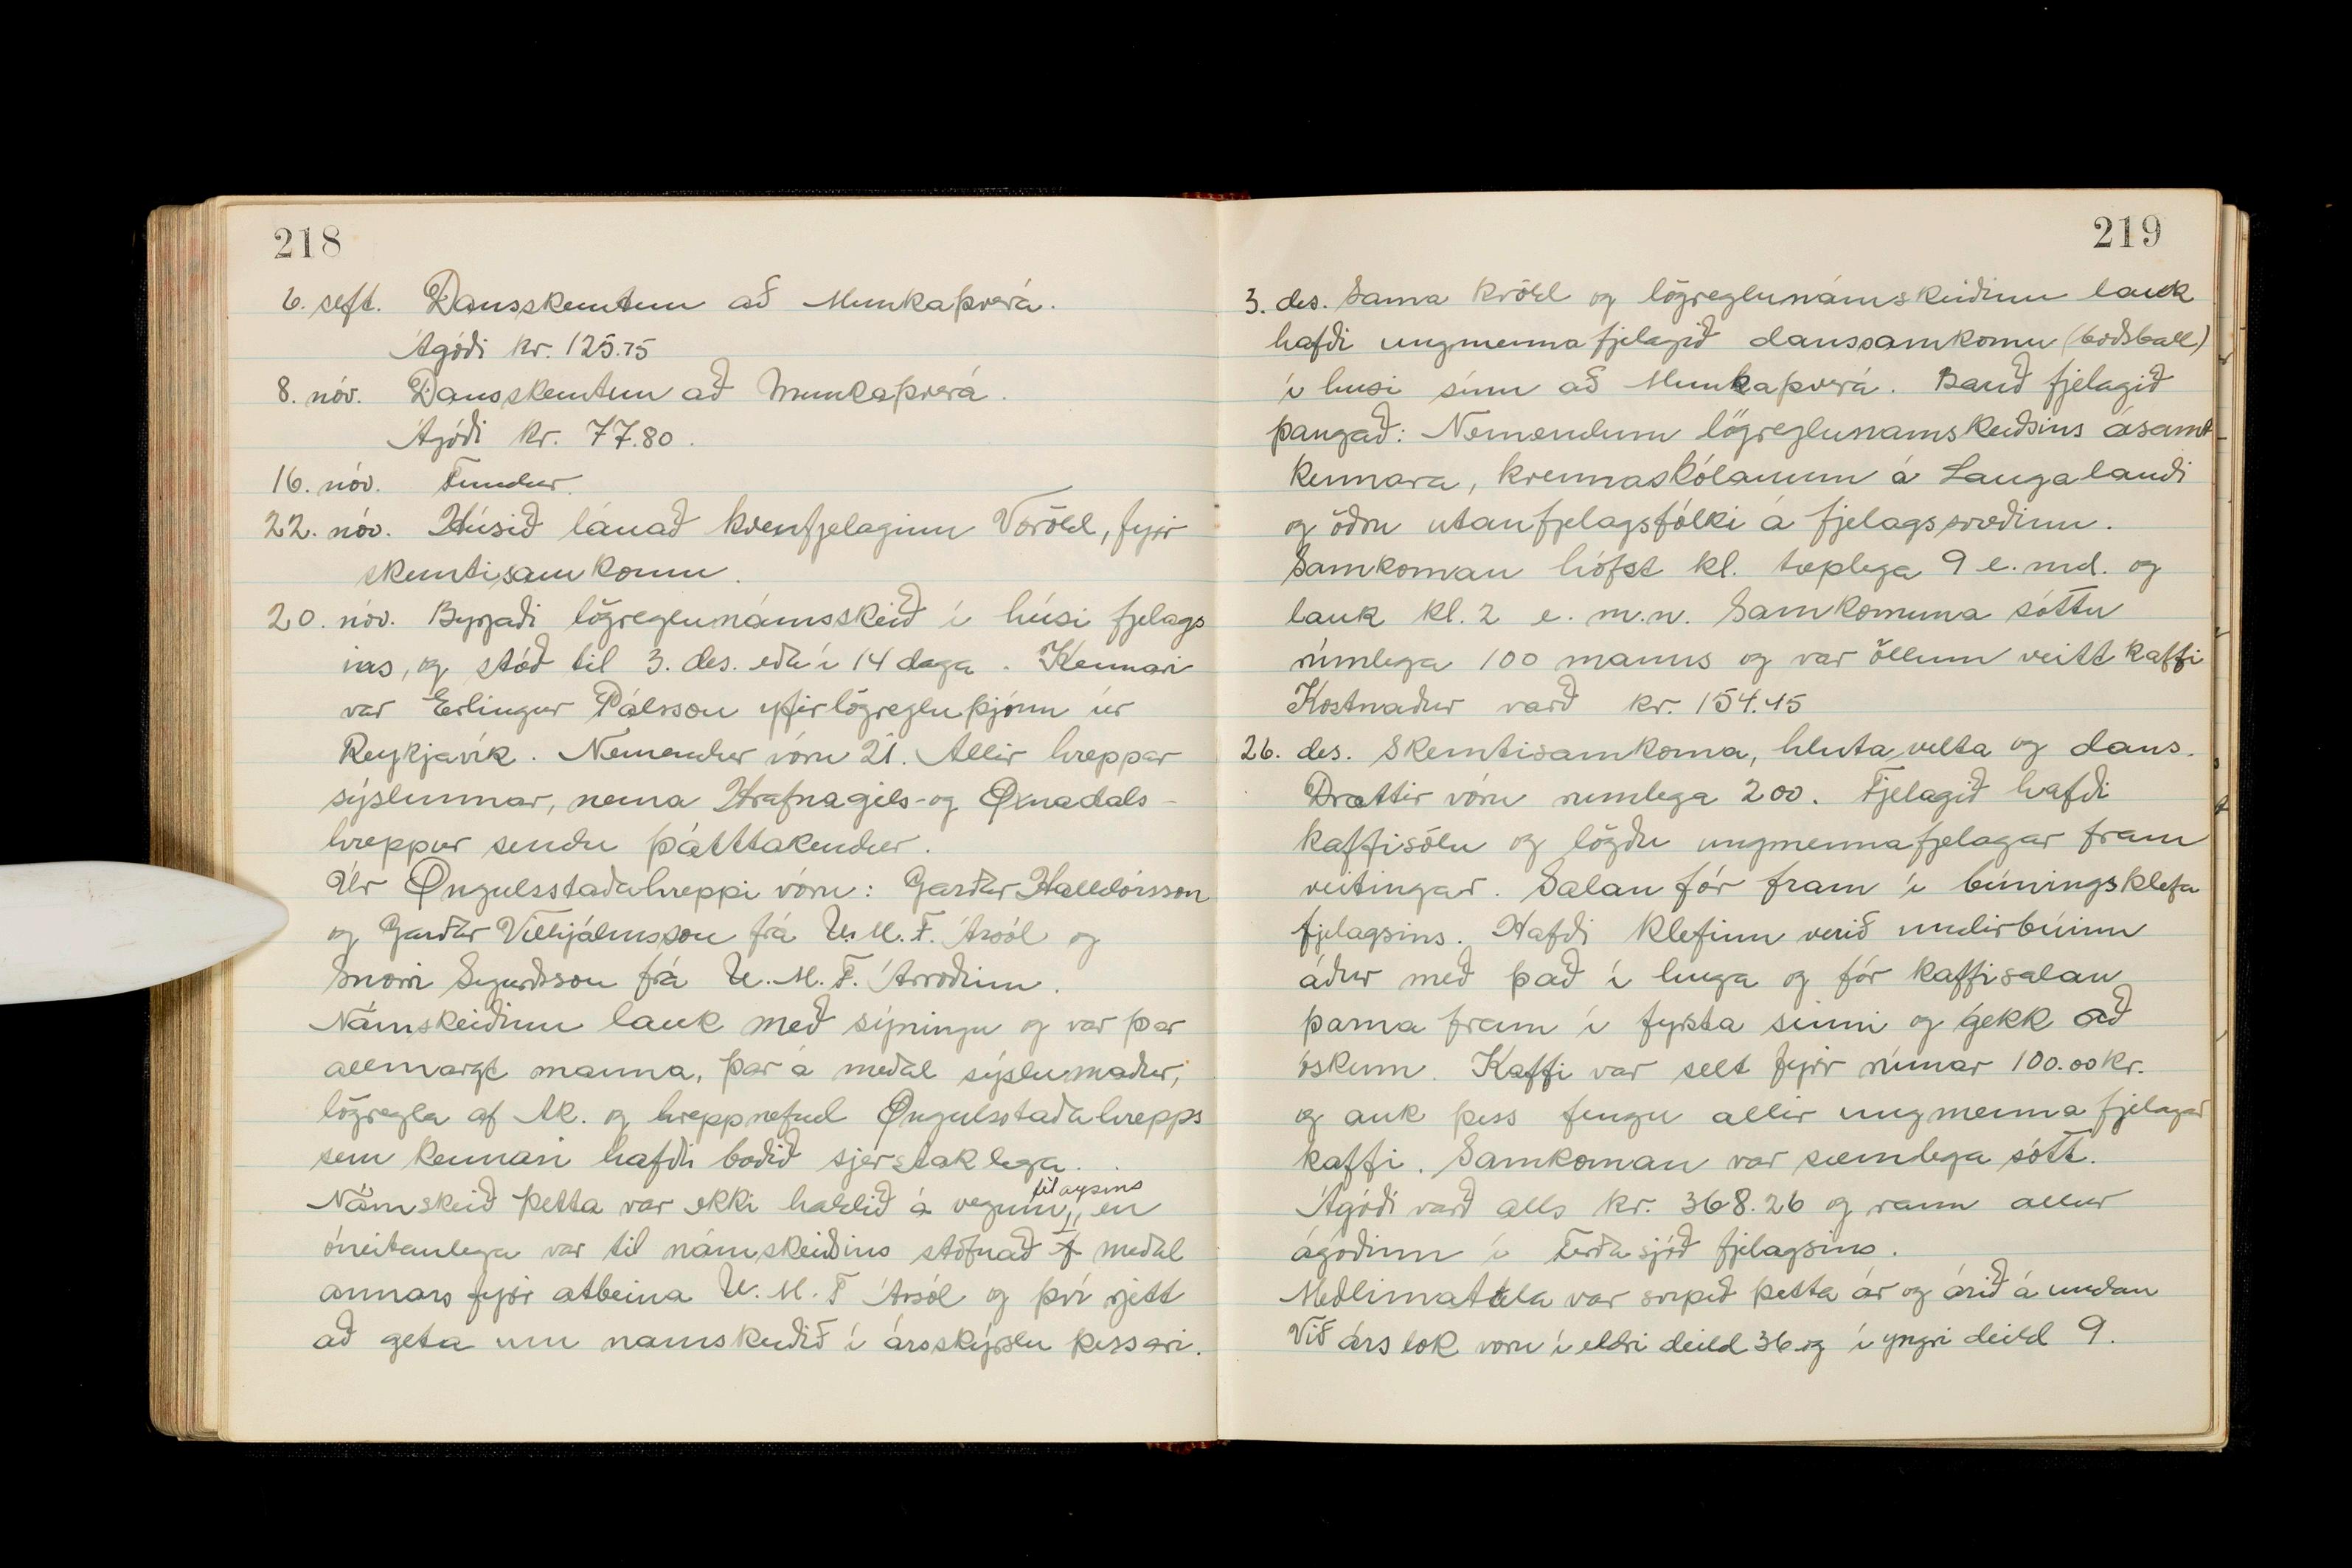 218
6. sept. Dansskemtun að Munkaþverá.
Ágóði kr. 125.75
8. nóv. Dansskemtun að Munkaþverá.
Ágóði kr. 77.80.
16. nóv. Fundur.
22. nóv. Húsið lánað kvenfjelaginu Voröld, fyrir
skemtisamkomu.
20. nóv. Byrjaði lögreglunámsskeið í húsi fjelags
ins, og stóð til 3. des. eða í 14 daga. Kennari
var Erlingur Pálsson yfirlögregluþjónn úr
Reykjavík. Nemendur vóru 21. Allir hreppar
sýslunnar, nema Hrafnagils- og Øxnadals-
hreppur sendu þátttakendur.
Úr Øngulsstaðahreppi vóru: Garðar Halldórsson
og Garðar Vilhjálmsson frá U.M.F. Ársól og
Snorri Sigurðsson frá U.M.F. Árroðinn.
Námskeiðinu lauk með sýningu og var þar
allmargt manna, þar á meðal sýslumaður,
lögregla af Ak. og hreppnefnd Øngulsstaðahrepps
sem kennari hafði boðið sjerstaklega.
fjelagsins
Námskeið þetta var ekki haldið á vegum, en
óneitanlega var til námskeiðsins stofnað f meðal
annars fyrir atbeina U.M.F Ársól og því rjett
að geta um namskeiðið í ársskýrslu þessari.
219
3. des. Sama kvöld og lögreglunámskeiðinu lauk
hafði ungmennafjelagið danssamkomu (boðsball)
í húsi sínu að Munkaþverá. Bauð fjelagið
þangað: Nemendum lögreglunamskeiðsins ásamt
kennara, kvennaskólanum á Laugalandi
og öðru utanfjelagsfólki á fjelagssvæðinu.
Samkoman hófst kl. tæplega 9 e.md. og
lauk kl. 2 e. m.n. Samkomuna sóttu
rúmlega 100 manns og var öllum veitt kaffi
Kostnaður varð kr. 154.45
26. des. Skemtisamkoma, hlutavelta og dans.
Drættir vóru rumlega 200. Fjelagið hafði
kaffisölu og lögðu ungmennafjelagar fram
veitingar. Salan fór fram í búningsklefa
fjelagsins. Hafði klefinn verið undirbúinn
áður með það í huga og fór kaffisalan
þarna fram í fyrsta sinni og gekk að
óskum. Kaffi var selt fyrir rúmar 100.00 kr.
og auk þess fengu allir ungmennafjelagar
kaffi. Samkoman var sæmlega sótt.
Ágóði varð alls kr. 368.26 og rann allur
ágóðinn í Ferðasjóð fjelagsins.
Meðlimatala var svipuð þetta ár og árið á undan
Við árs lok voru í eldri deild 36 og í yngri deild 9.